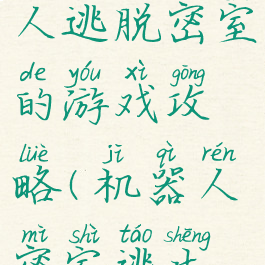 人逃脱密室
de yóu xì gōng
的游戏攻
lüè jī qì rén
略(机器人
mì shì táo shēng
密室逃生